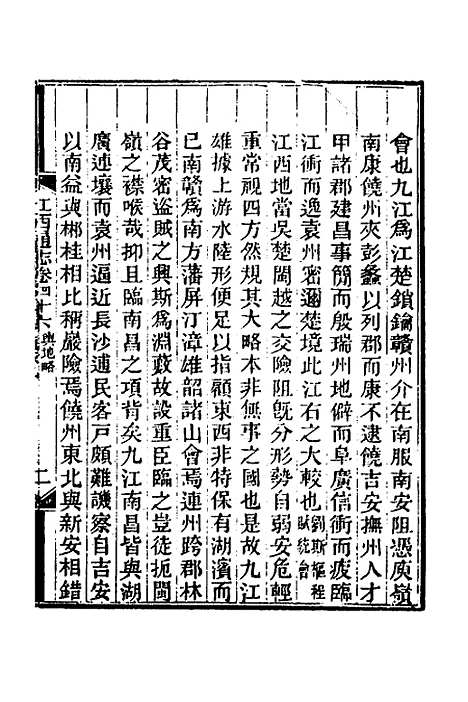 會也九江爲江楚鎖鑰贛州介在南服南安阻憑庾嶺
南康饒州夾彭蠡以列郡而康不逮饒吉安撫州人才
甲諸郡建昌事簡而殷瑞州地僻而阜廣信衝而疲臨
江衝而逸袁州密邇楚境此江右之大較也劉斯樞程賦統會
江西地當吳楚閩越之交險阻既分形勢自弱安危輕
重常視四方然規其大略本非無事之國也是故九江
雄據上游水陸形便足以指顧東西非特保有湖濱而
已南贛爲南方藩屏汀漳雄韶諸山會焉連州跨郡林
谷茂密盜賊之興斯爲淵藪故設重臣臨之豈徒扼閩
嶺之襟喉哉抑且臨南昌之項背矣九江南昌皆與湖
廣連壤而袁州逼近長沙逋民客戶頗難譏察自吉安
以南益與郴桂相比稱嚴險焉饒州東北與新安相錯
江西通志卷四十六 輿地略 二